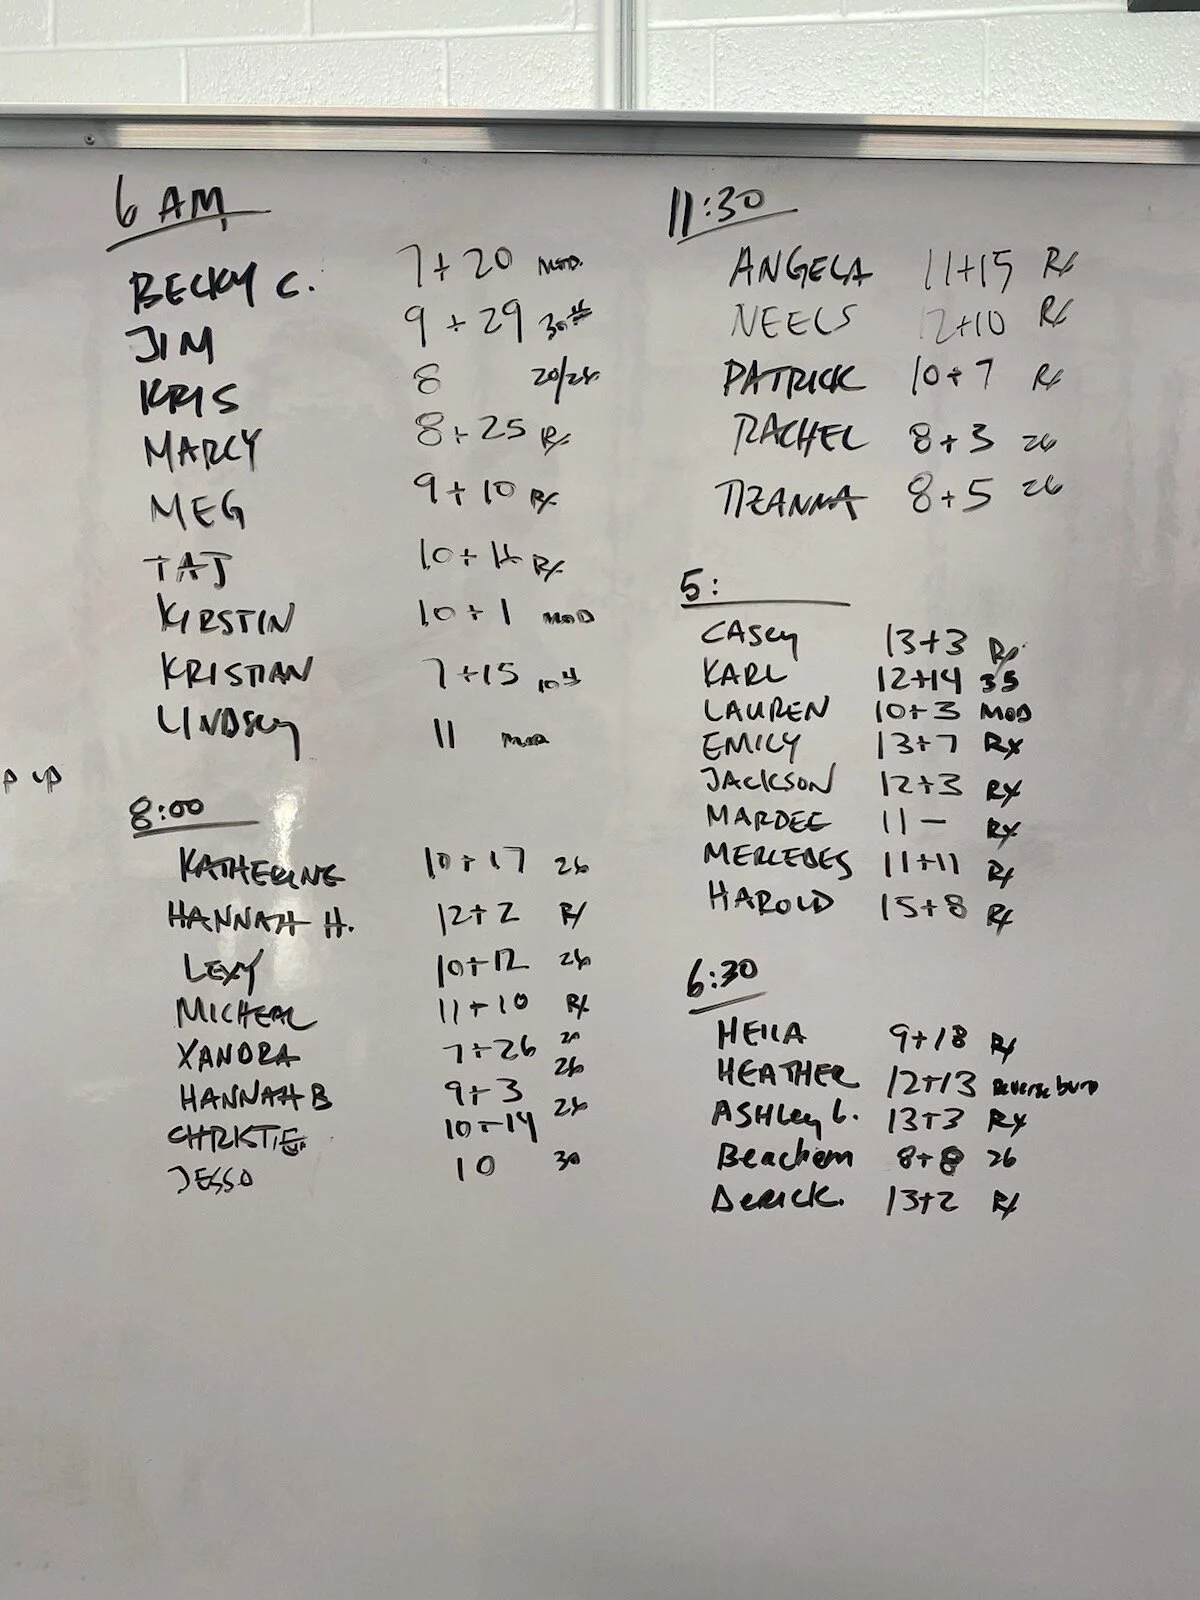 6 AM
BECKY C. 7+20 MOD.
JIM 9+29 30#
KRIS 8 20/26
MARCY 8+25 Rx
MEG 9+10 Rx
TAJ 10+ Rx
KIRSTIN 10+1 MOD
KRISTIAN 7+15 10#
LINDSEY 11 MOD
P UP
8:00
KATHERINE 10+17 26
HANNAH H. 12+2 Rx
LEXY 10+12 26
MICHEAL 11+10 Rx
XANDRA 7+26 20
HANNAH B 9+3 26
CHRISTIE 10+14 26
JESSO 10 30
11:30
ANGELA 11+15 Rx
NEELS 12+10 Rx
PATRICK 10+7 Rx
RACHEL 8+3 26
TIZANNA 8+5 26
5:
CASEY 13+3 Rx
KARL 12+14 35
LAUREN 10+3 MOD
EMILY 13+7 Rx
JACKSON 12+3 Rx
MARDEE 11 — Rx
MERCEDES 11+11 Rx
HAROLD 15+8 Rx
6:30
HEILA 9+18 Rx
HEATHER 12+13 Reverse burp
ASHLEY L. 13+3 Rx
Beachem 8+8 26
DERICK. 13+2 Rx